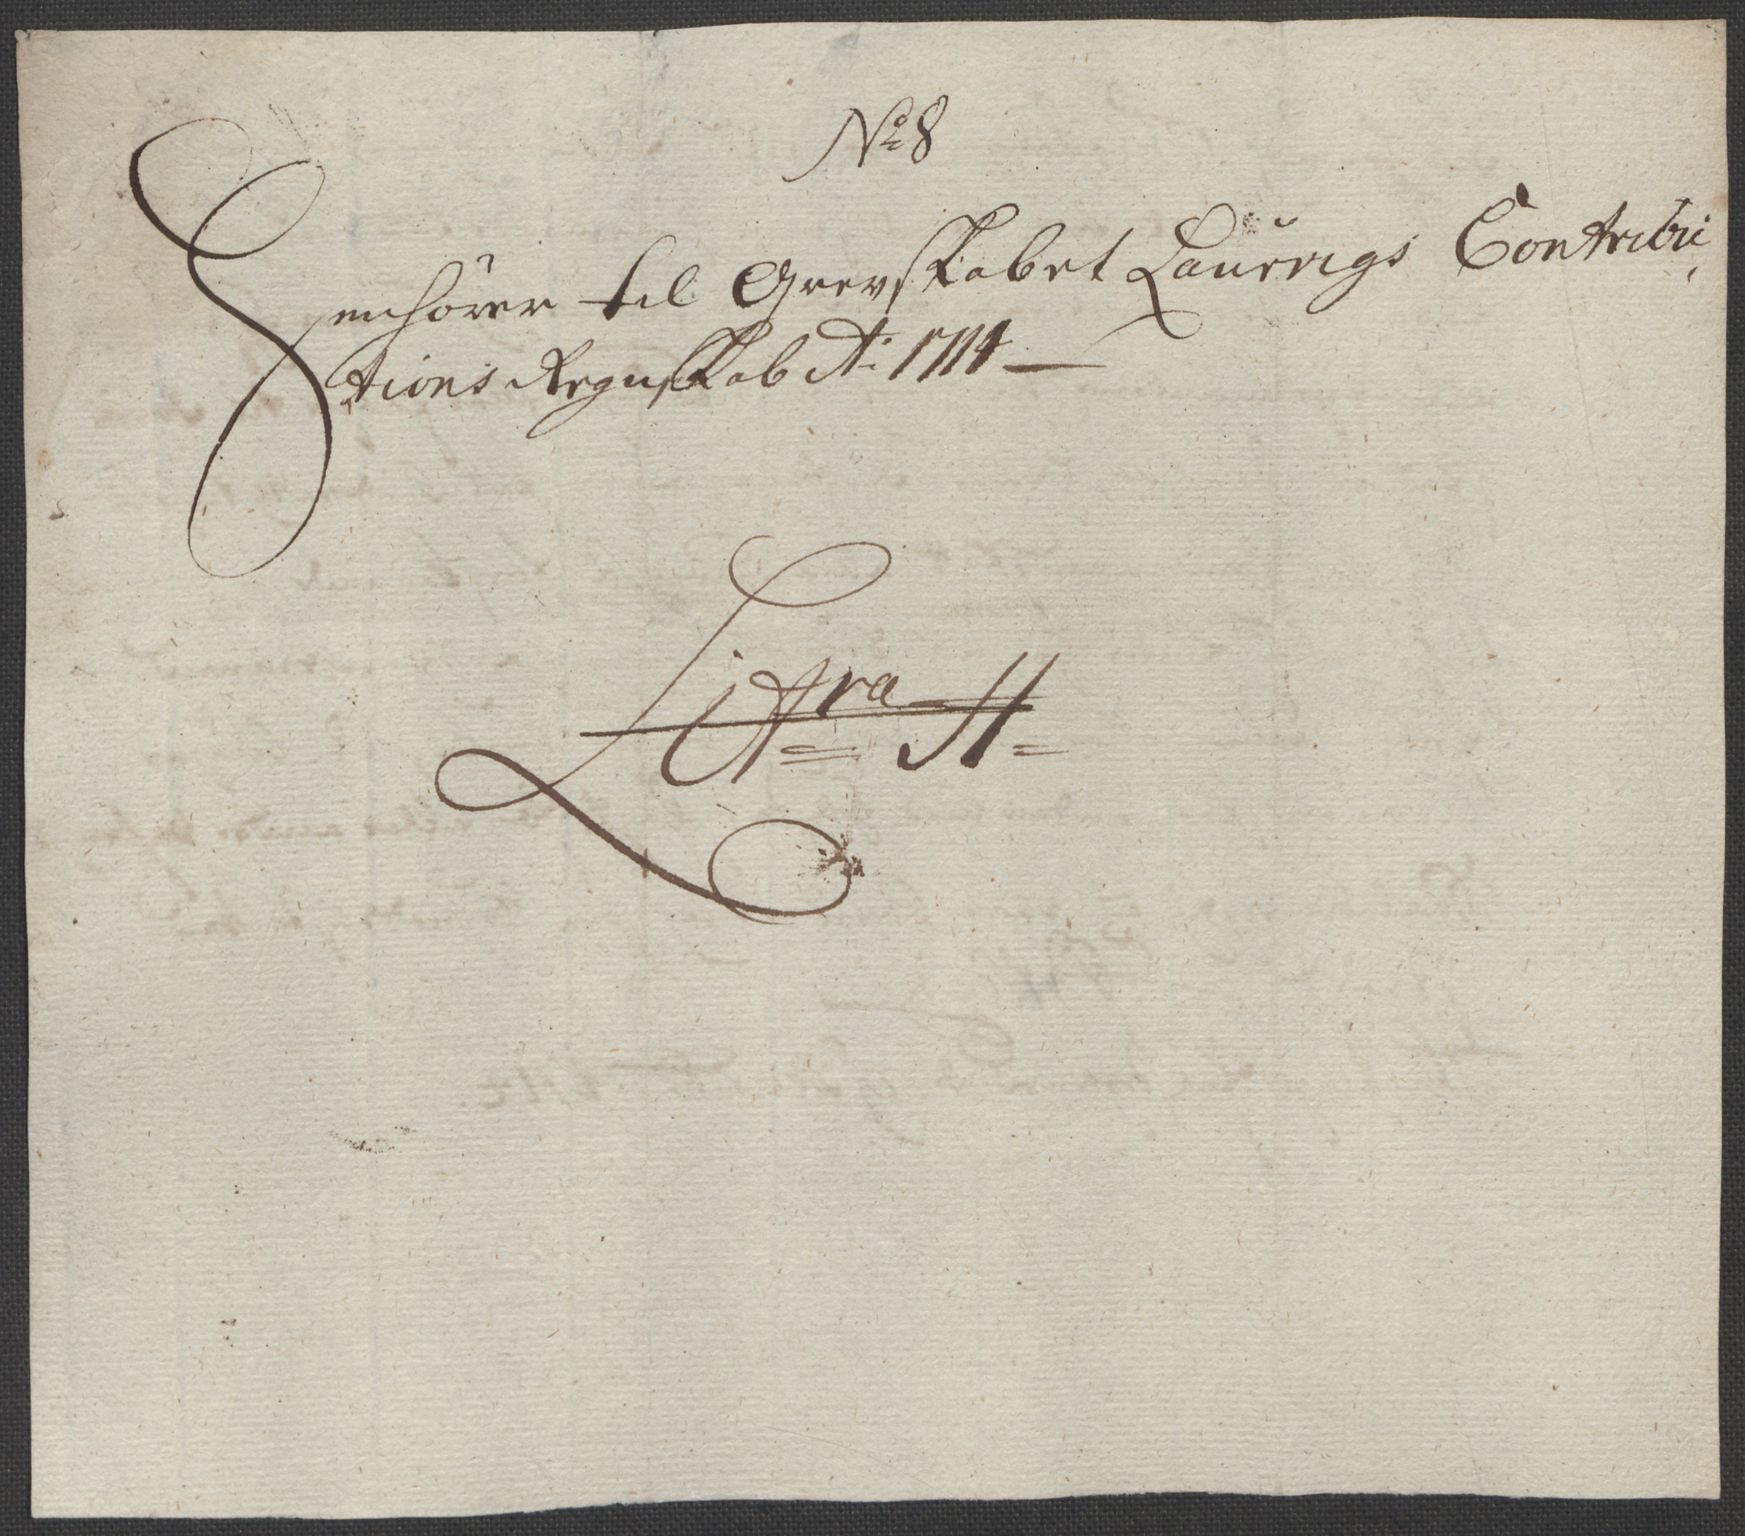 No 8
Henhörer til Grevskabet Laurvigs Contribu
tions Regnskab Ao: 1714
Littra H